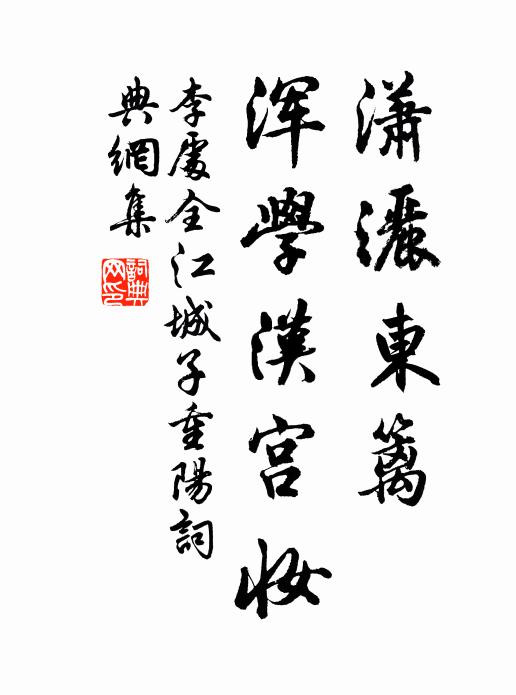 瀟灑東篱
渾學漢宮妝
李處全江城子重陽詞
典網集
詞典
网印